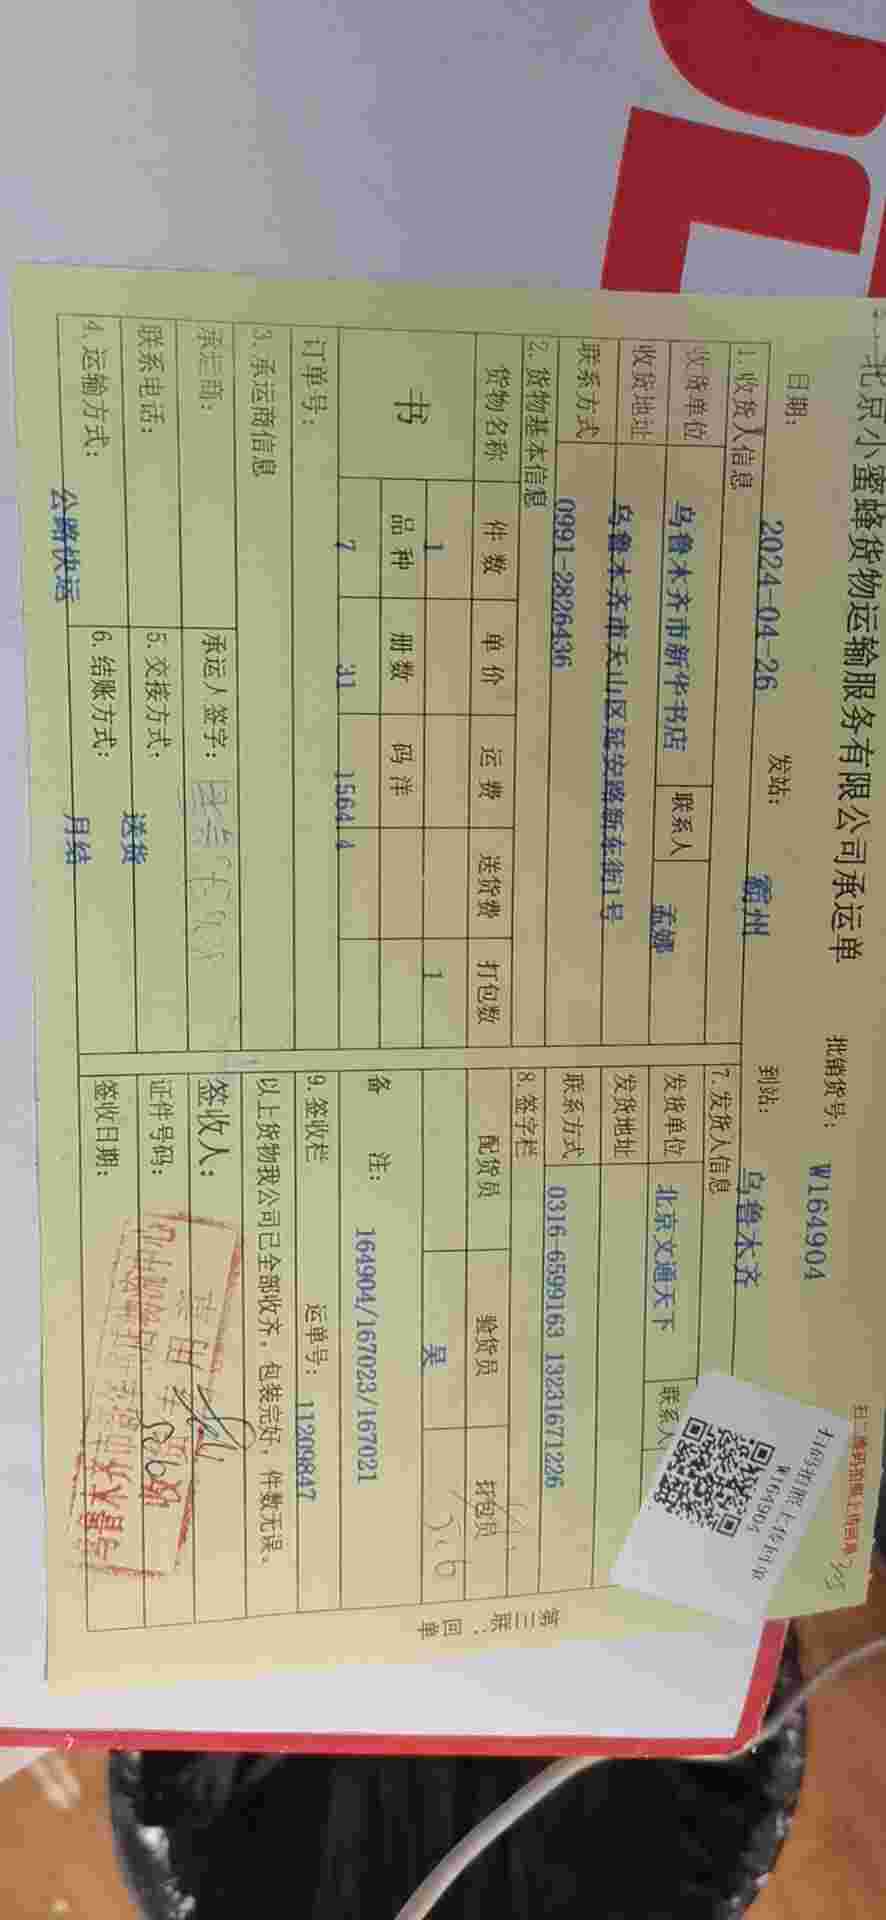 北京小蜜蜂货物运输服务有限公司承运单
批销货号： W164904
扫二维码拍照上传回单
扫码拍照上传回单
W164904
日期： 2024-04-26 发站： 霸州 到站： 乌鲁木齐
1.收货人信息
收货单位 乌鲁木齐市新华书店 联系人 孟娜
收货地址 乌鲁木齐市天山区延安路新东街1号
联系方式 0991-2826436
2.货物基本信息
货物名称 件数 单价 运费 送货费 打包数
书 1 1
品种 册数 码洋
7 31 1564.4
订单号：
3.承运商信息
承运商： 承运人签字：
联系电话： 5.交接方式： 送货
4.运输方式： 公路快运 6.结账方式： 月结
7.发货人信息
发货单位 北京文通天下 联系人
发货地址
联系方式 0316-6599163 13231671226
8.签字栏
配货员 验货员 打包员
吴 5.6
备 注： 164904/167023/167021
9.签收栏 运单号： 11209847
以上货物我公司已全部收齐，包装完好，件数无误。
签收人：
证件号码： 5.6
签收日期：
第三联：回单